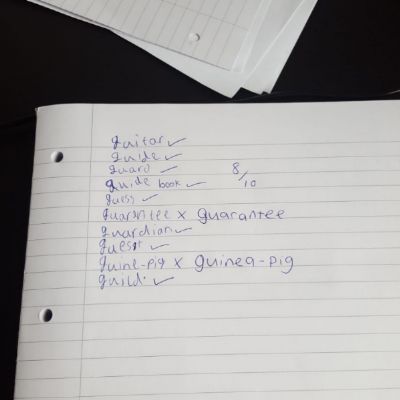 guitar ✓
guide ✓
guard ✓ 8/10
guide book ✓
guess ✓
guarintee x guarantee
guardian ✓
guest ✓
guine-pig x guinea-pig
guild. ✓